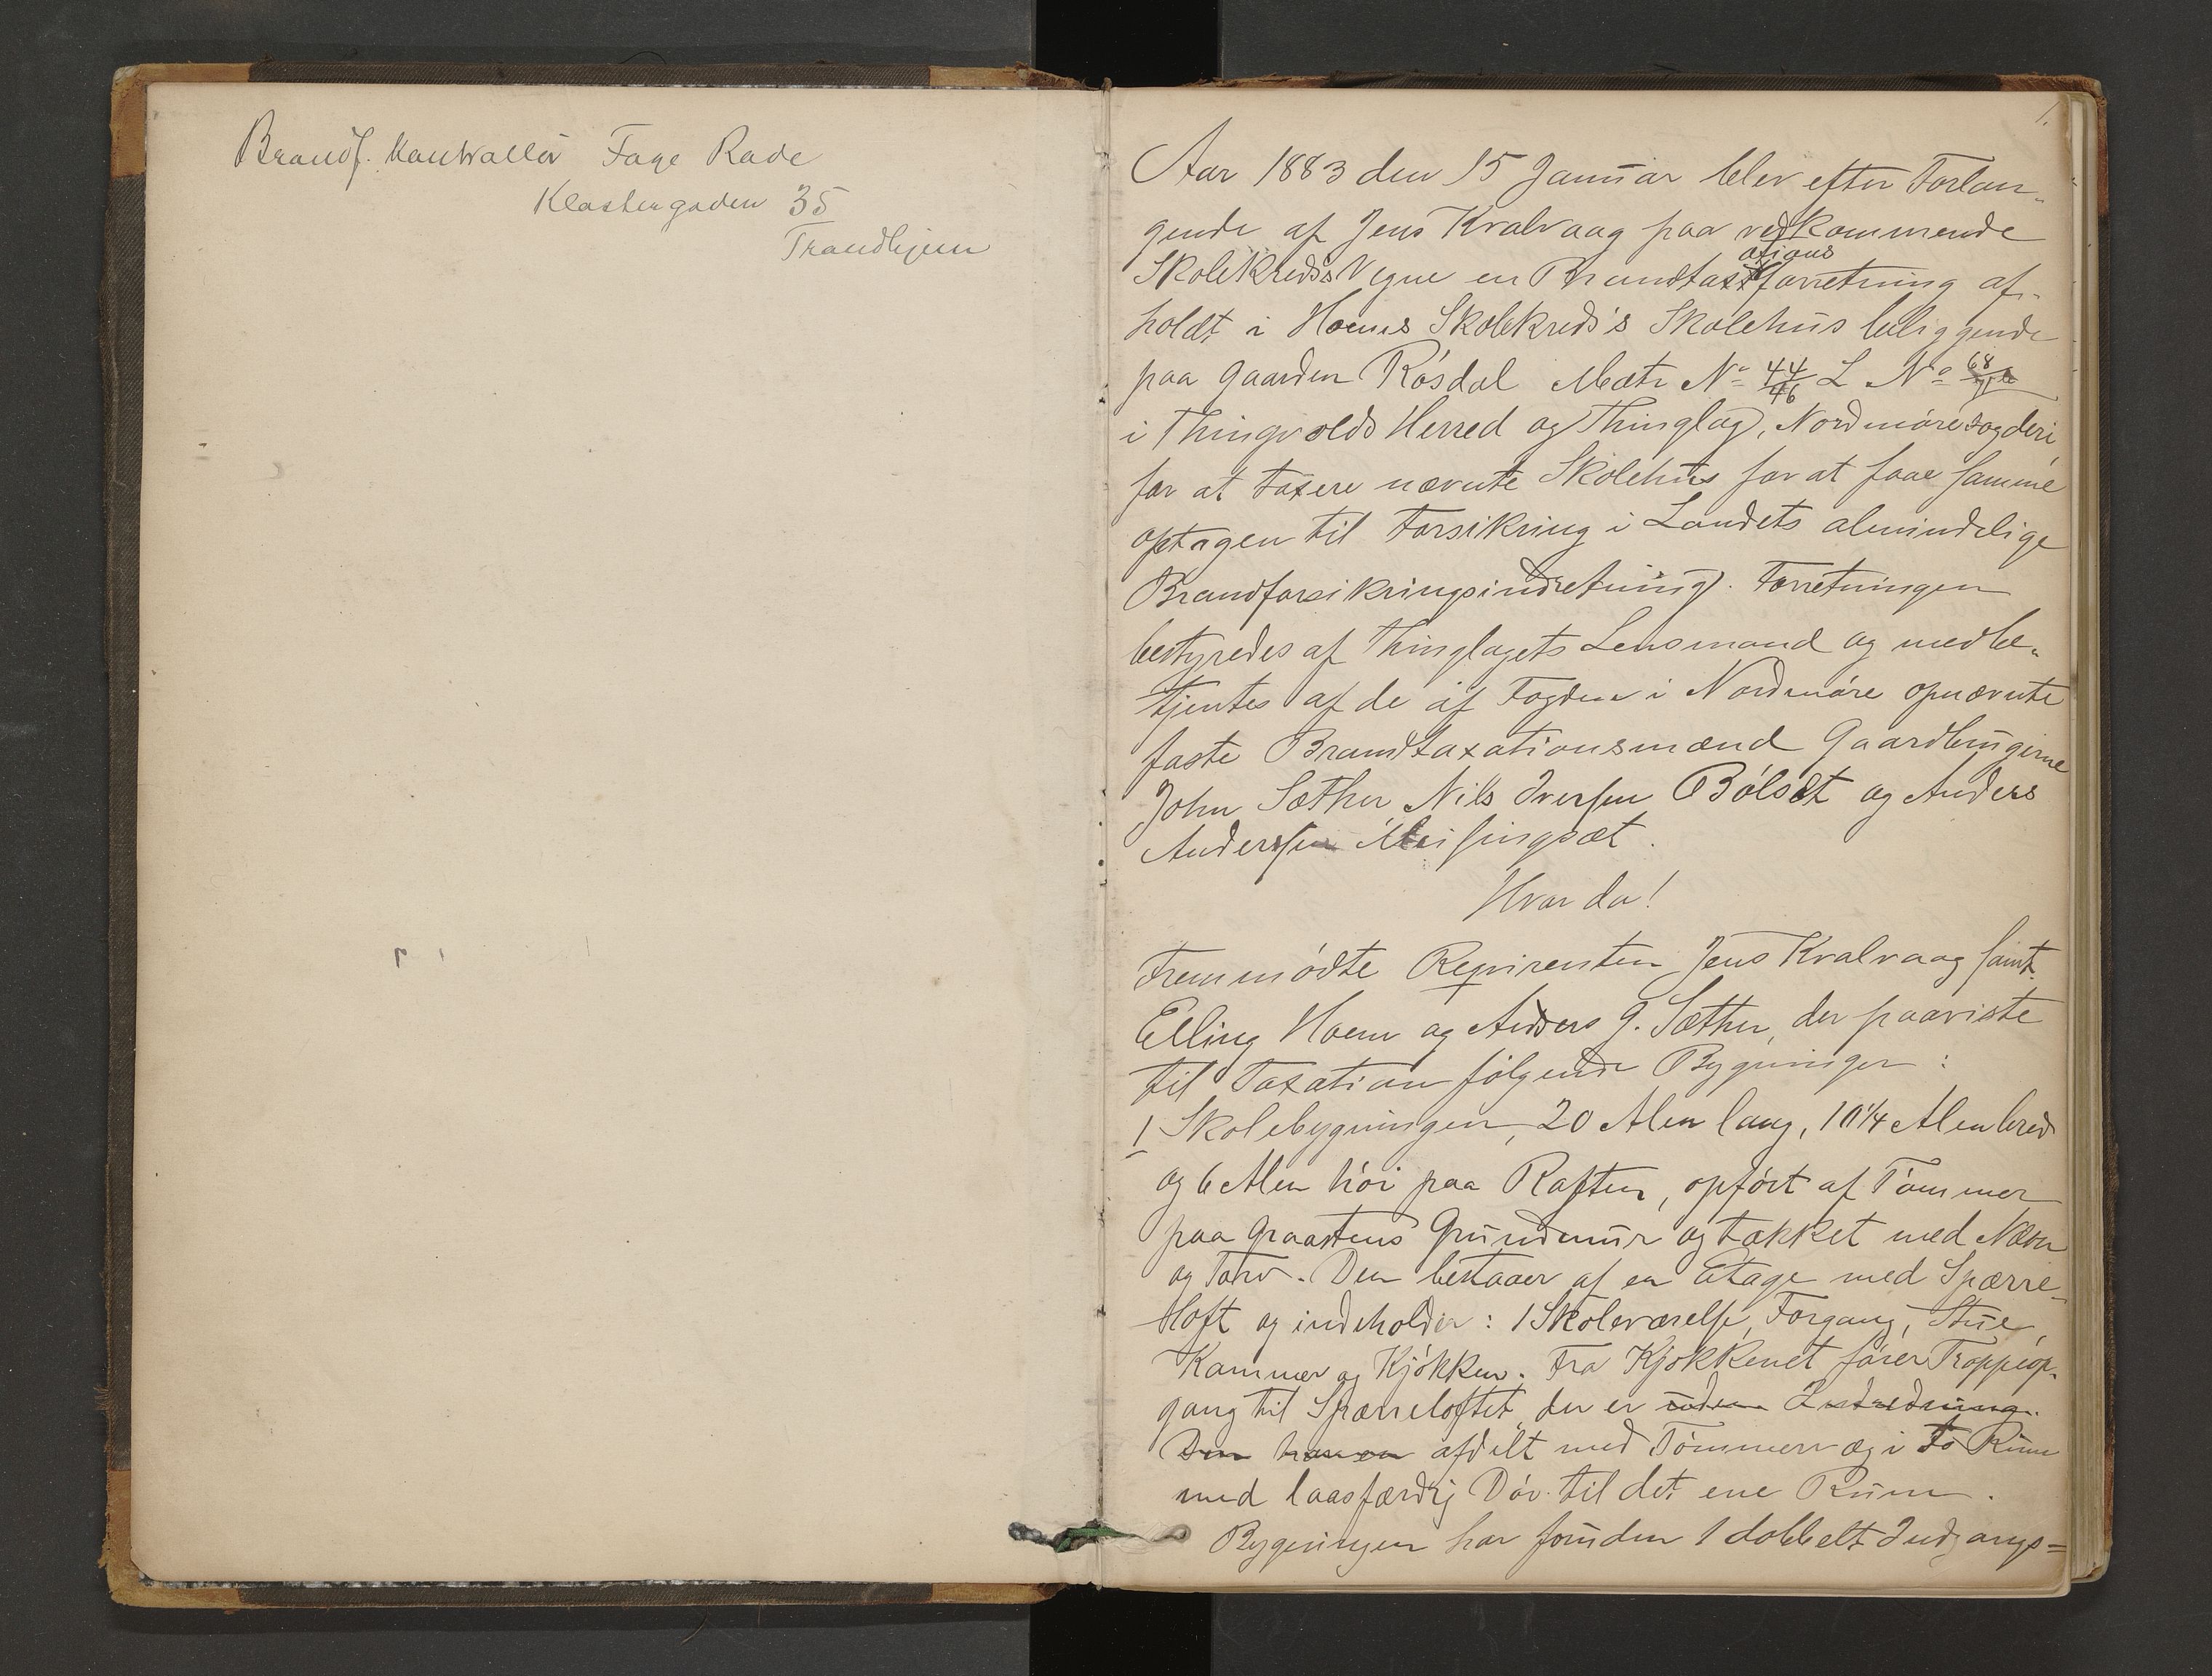 Brandf. Kontrollør Fage Rade
Klostergaden 35
Trondhjem
1.
Aar 1883 den 15 Januar blev efter Forlan-
gende af Jens Kvalvaag paa vedkommende
Skolekreds's Vegne en Brandtaxationsforretning af-
holdt i Hoems Skolekreds's Skolehus beliggende
paa Gaarden Rósdal Matr No 44/46 L No 68
i Thingvolds Herred og Thinglag, Nordmøres Fogderi,
for at taxere nævnte Skolehus for at faae samme
optagen til Forsikring i Landets almindelige
Brandforsikringsindretning. Forretningen
bestyredes af Thinglagets Lensmand og medbe-
tjentes af de af Fogden i Nordmøre opnævnte
faste Brandtaxationsmænd Gaardbrugerne
John Sæther Nils Iversen Bólsæt og Anders
Andersen Meisingsæt.
Hvor da!
Fremmódte Reqvirenten Jens Kvalvaag samt
Elling Hoem og Anders G. Sæther, der paaviste
til Taxation fólgende Bygninger:
1 Skolebygningen, 20 Alen lang, 10 1/4 Alen bred
og 6 Alen hói paa Raften, opfórt af Tómmer
paa Graastens Grundmur og tækket med Næver
og Torv. Den bestaaer af en Etage med Spærre-
loft og indeholder: 1 Skoleværelse, Forgang, Stue,
Kammer og Kjókken. Fra Kjókkenet fórer Trappeop-
gang til Spærreloftet, der er uden Indredning.
Den afdelt med Tómmervæg i to Rum
med laasfærdig Dór til det ene Rum.
Bygningen har foruden 1 dobbelt Indgangs=